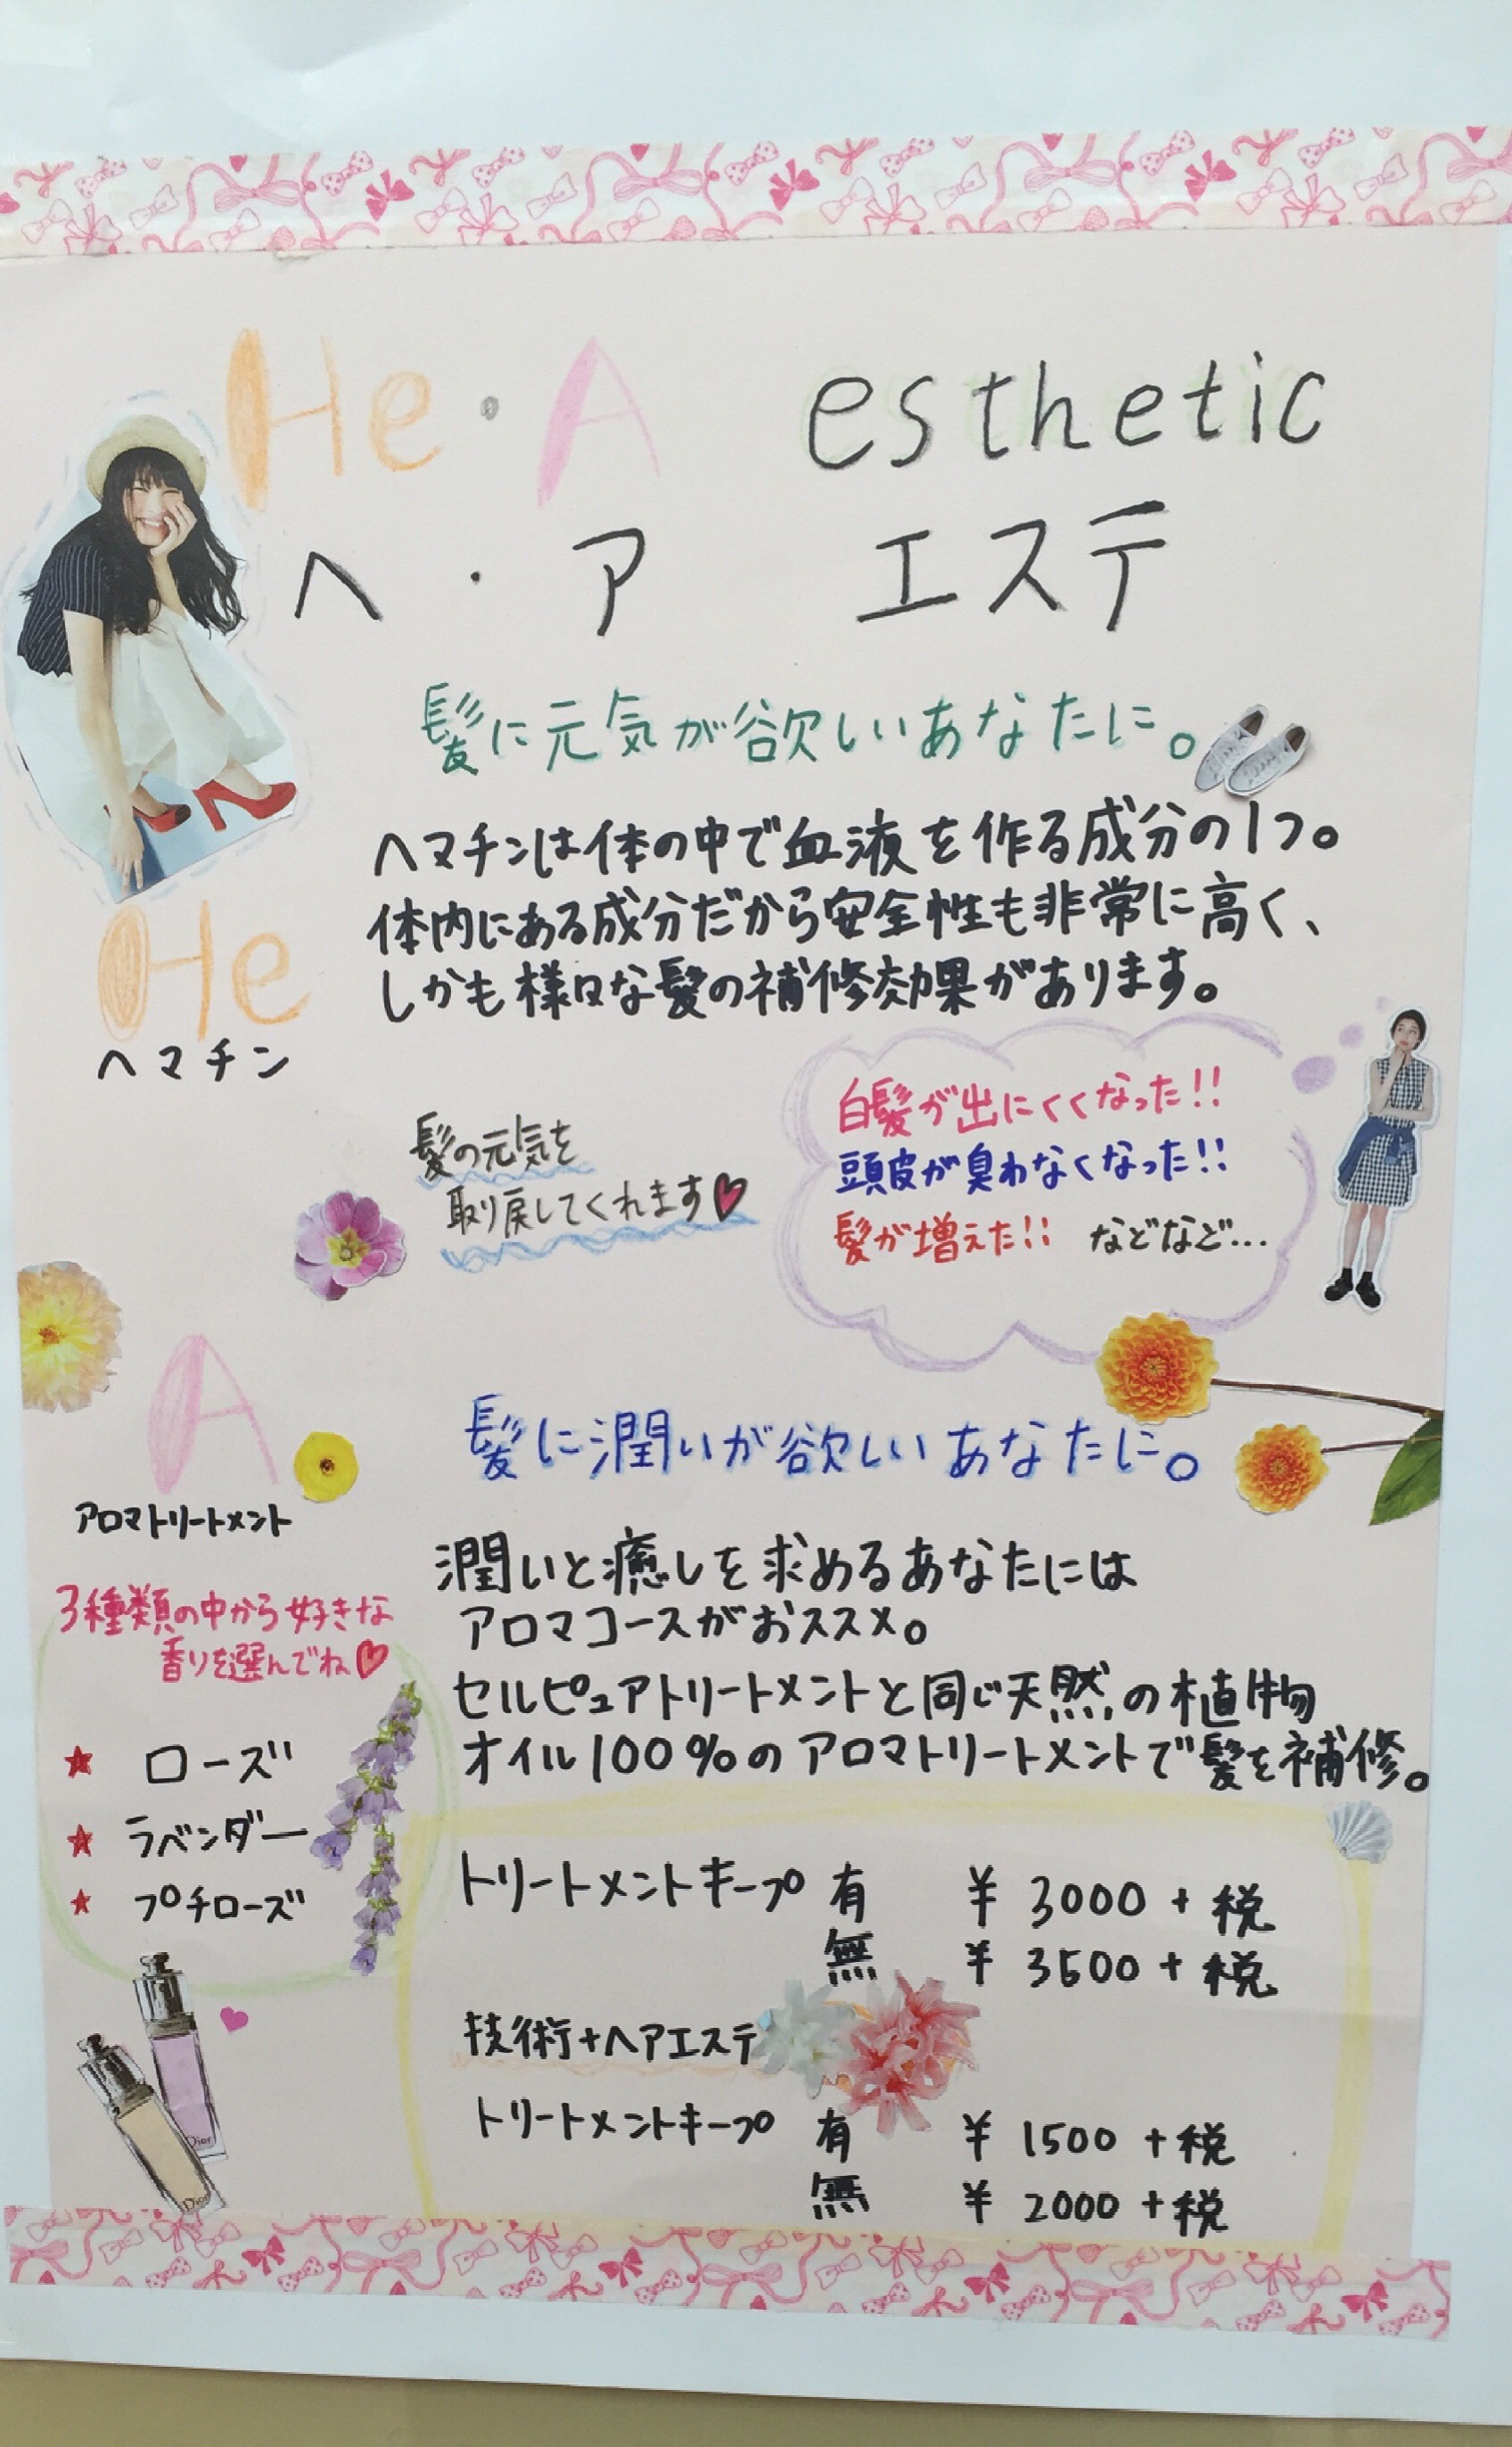 He・A esthetic
ヘ・ア エステ
髪に元気が欲しいあなたに。
ヘマチンは体の中で血液を作る成分の1つ。
体内にある成分だから安全性も非常に高く、
しかも様々な髪の補修効果があります。
He
ヘマチン
髪の元気を
取り戻してくれます
白髪が出にくくなった!!
頭皮が臭わなくなった!!
髪が増えた!! などなど…
A
アロマトリートメント
髪に潤いが欲しいあなたに。
潤いと癒しを求めるあなたには
アロマコースがおススメ。
セルピュアトリートメントと同じ天然の植物
オイル100%のアロマトリートメントで髪を補修。
3種類の中から好きな
香りを選んでね
★ ローズ
★ ラベンダー
★ プチローズ
トリートメントキープ 有 ¥3000+税
無 ¥3500+税
技術+ヘアエステ
トリートメントキープ 有 ¥1500+税
無 ¥2000+税
Dior
Dior